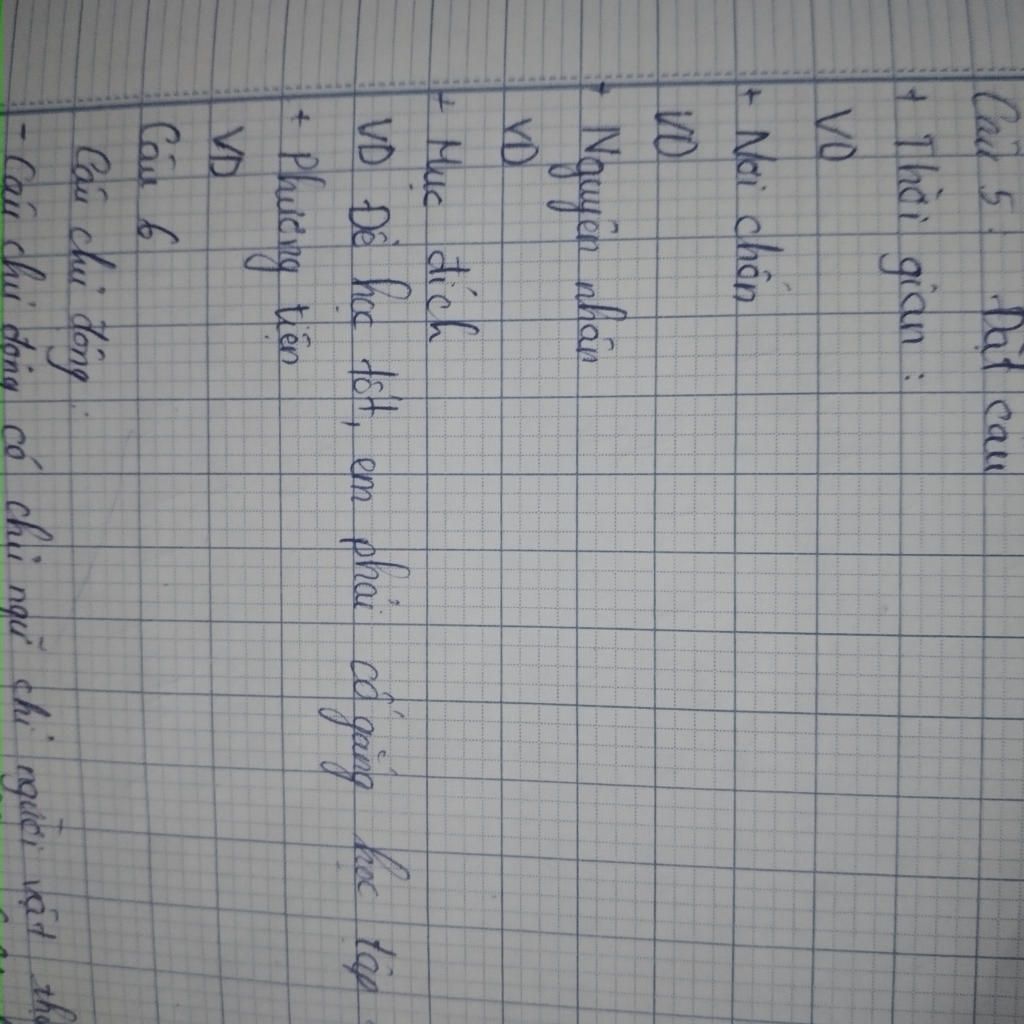 Câu 5: Đặt câu
+ Thời gian:
VD
+ Nơi chốn
VD
+ Nguyên nhân
VD
+ Mục đích
VD Để học tốt, em phải cố gắng học tập.
+ Phương tiện
VD
Câu 6
Câu chủ động:
- Câu chủ động có chủ ngữ chỉ người vật